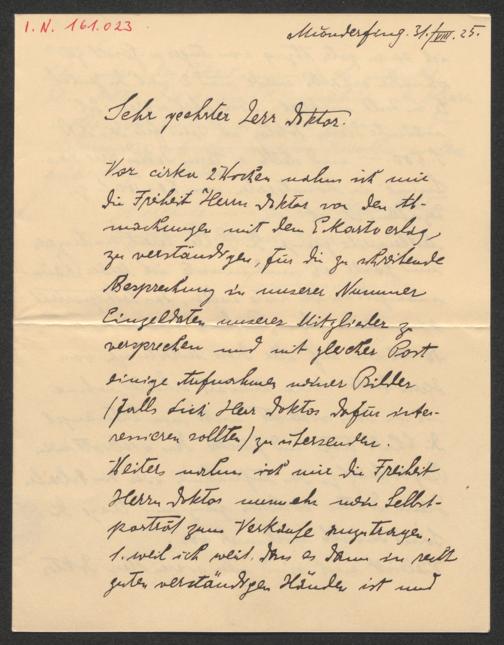 I.N. 161.023
Munderfing. 31./VIII. 25.
Sehr geehrter Herr Doktor.
Vor cirka 2 Wochen nahm ich mir
die Freiheit Herrn Doktor von den Ab-
machungen mit dem Eckartverlag,
zu verständigen, für die zu schreibende
Besprechung in unserer Nummer
Einzeldaten unserer Mitglieder zu
versprechen und mit gleicher Post
einige Aufnahmen meiner Bilder
(falls sich Herr Doktor dafür inter-
ressieren sollten) zu übersenden.
Weiters nahm ich mir die Freiheit
Herrn Doktor nunmehr mein Selbst-
porträt zum Verkaufe anzutragen.
1. weil ich weiß, dass es dann in recht
guten verständigen Händen ist und